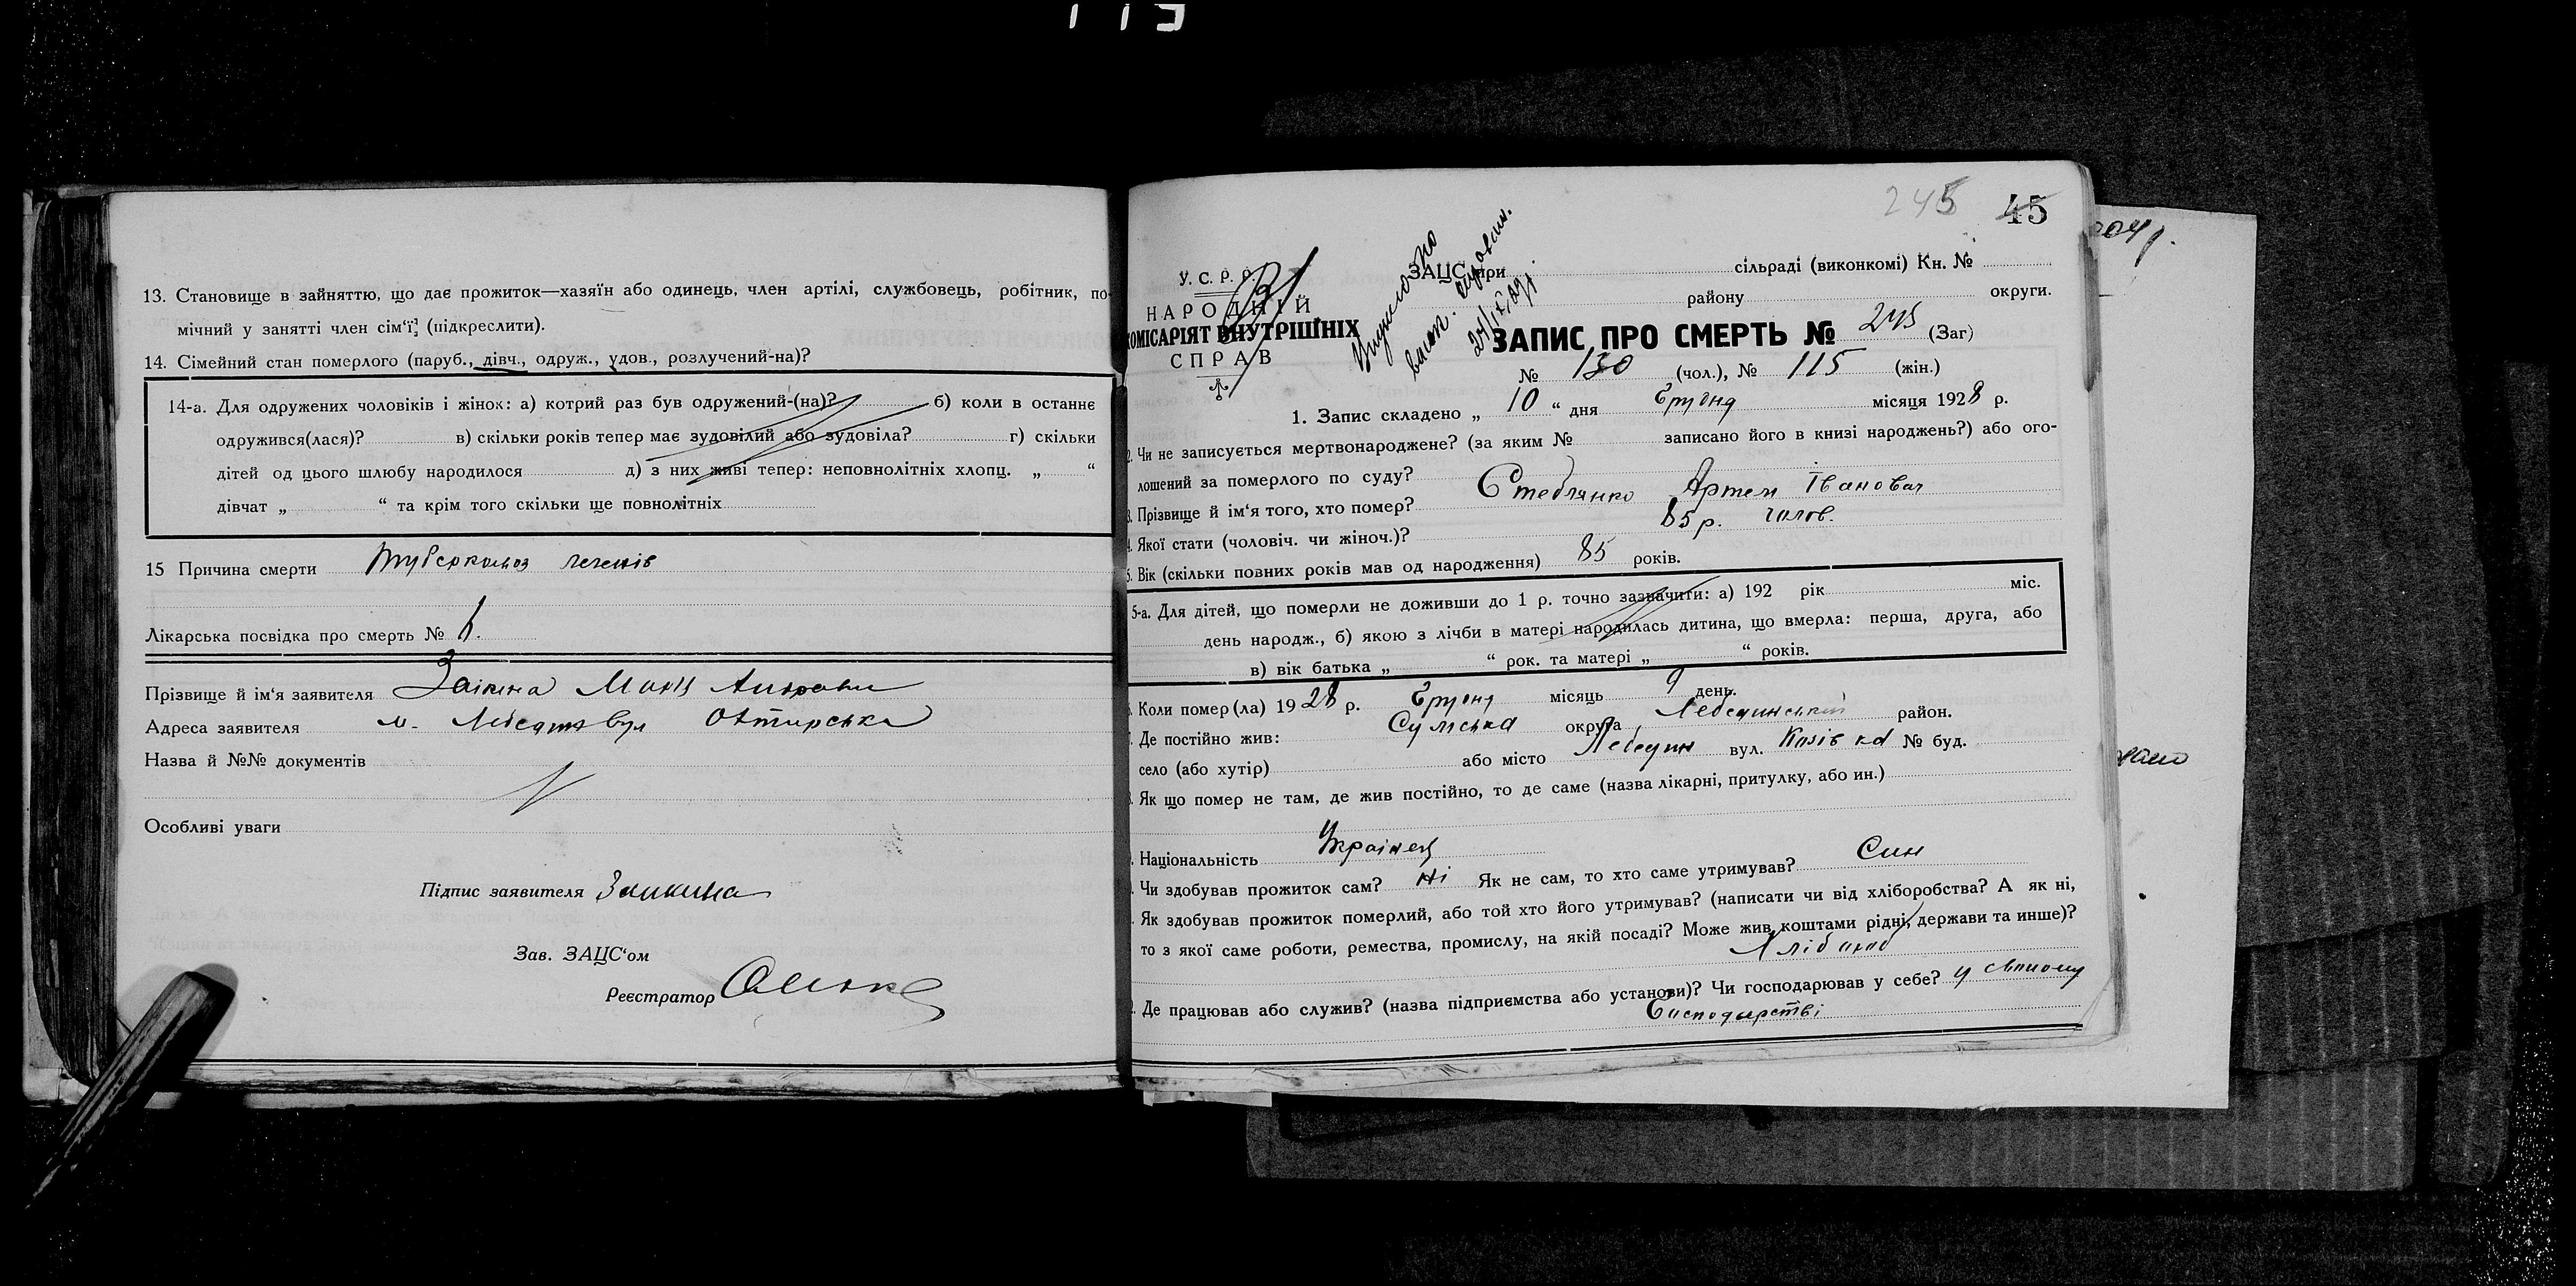 13. Становище в зайняттю, що дає прожиток—хазяїн або одинець, член артілі, службовець, робітник, по-
мічний у занятті член сім‘ї (підкреслити).
14. Сімейний стан померлого (паруб., дівч., одруж., удов., розлучений-на)?
14-а. Для одружених чоловіків і жінок: а) котрий раз був одружений-(на)? б) коли в останнє
одружився(лася)? в) скільки років тепер має зудовілий або зудовіла? г) скільки
дітей од цього шлюбу народилося д) з них живі тепер: неповнолітніх хлопц. „ “
дівчат „ “ та крім того скільки ще повнолітніх
15 Причина смерти Туберкольоз легенів
Лікарська посвідка про смерть №
Прізвище й ім‘я заявителя Заікина
Адреса заявителя м. Лебедин вул Охтирська
Назва й №№ документів
Особливі уваги
Підпис заявителя Заикина
Зав. ЗАЦС‘ом
Реєстратор
245 45
У.С.Р.Р.
НАРОДНІЙ
КОМІСАРІЯТ ВНУТРІШНІХ
СПРАВ
ЗАЦС при сільраді (виконкомі) Кн. №
району округи.
ЗАПИС ПРО СМЕРТЬ № 245 (Заг)
№ 130 (чол.), № 115 (жін.)
1. Запис складено „ 10 “ дня Грудня місяця 1928 р.
2. Чи не записується мертвонароджене? (за яким № записано його в книзі народжень?) або ого-
лошений за померлого по суду?
3. Прізвище й ім‘я того, хто помер? Стеблянко Артем Іванович
4. Якої стати (чоловіч. чи жіноч.)? 85 р. чолов.
5. Вік (скільки повних років мав од народження) 85 років.
5-а. Для дітей, що померли не доживши до 1 р. точно зазначити: а) 192 рік міс.
день народж., б) якою з лічби в матері народилась дитина, що вмерла: перша, друга, або
в) вік батька „ “ рок. та матері „ “ років.
Коли помер(ла) 1928 р. Грудня місяць 9 день.
Де постійно жив: Сумська округа Лебединський район.
село (або хутір) або місто Лебедин вул. № буд.
Як що помер не там, де жив постійно, то де саме (назва лікарні, притулку, або ин.)
Національність Українец
Чи здобував прожиток сам? Ні Як не сам, то хто саме утримував? Син
Як здобував прожиток померлий, або той хто його утримував? (написати чи від хліборобства? А як ні,
то з якої саме роботи, ремества, промислу, на якій посаді? Може жив коштами рідні, держави та инше)?
Де працював або служив? (назва підприємства або установи)? Чи господарював у себе? у своиому
Господарстві